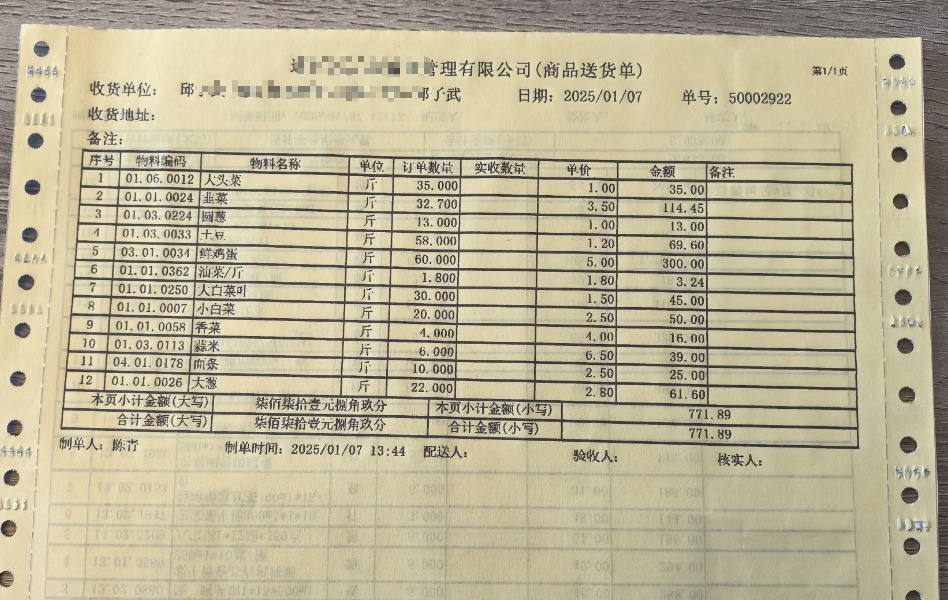 管理有限公司(商品送货单) 第1/1页
收货单位: 邱 邵子武 日期: 2025/01/07 单号: 50002922
收货地址:
备注:
序号 物料编码 物料名称 单位 订单数量 实收数量 单价 金额 备注
1 01.06.0012 大头菜 斤 35.000 1.00 35.00
2 01.01.0024 韭菜 斤 32.700 3.50 114.45
3 01.03.0224 圆葱 斤 13.000 1.00 13.00
4 01.03.0033 土豆 斤 58.000 1.20 69.60
5 03.01.0034 鲜鸡蛋 斤 60.000 5.00 300.00
6 01.01.0362 油菜/斤 斤 1.800 1.80 3.24
7 01.01.0250 大白菜叶 斤 30.000 1.50 45.00
8 01.01.0007 小白菜 斤 20.000 2.50 50.00
9 01.01.0058 香菜 斤 4.000 4.00 16.00
10 01.03.0113 蒜米 斤 6.000 6.50 39.00
11 04.01.0178 面条 斤 10.000 2.50 25.00
12 01.01.0026 大葱 斤 22.000 2.80 61.60
本页小计金额(大写) 柒佰柒拾壹元捌角玖分 本页小计金额(小写) 771.89
合计金额(大写) 柒佰柒拾壹元捌角玖分 合计金额(小写) 771.89
制单人: 陈青 制单时间: 2025/01/07 13:44 配送人: 验收人: 核实人: